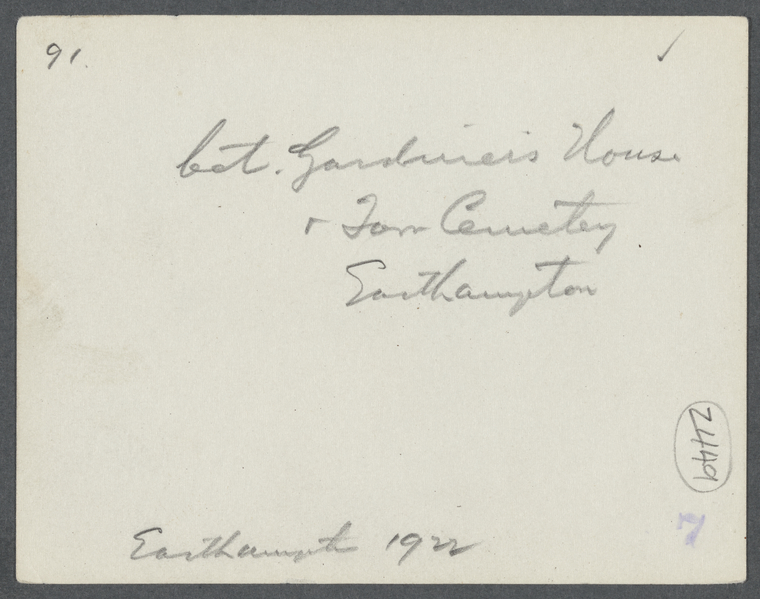 91.
bet. Gardiner's House
+ Town Cemetery
Easthampton
2449
7
Easthampton 1922